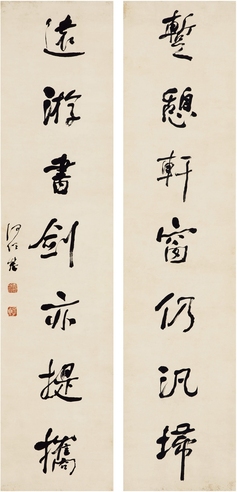 暫憩軒窗仍汎掃
遠游書劍亦提攜
何紹基